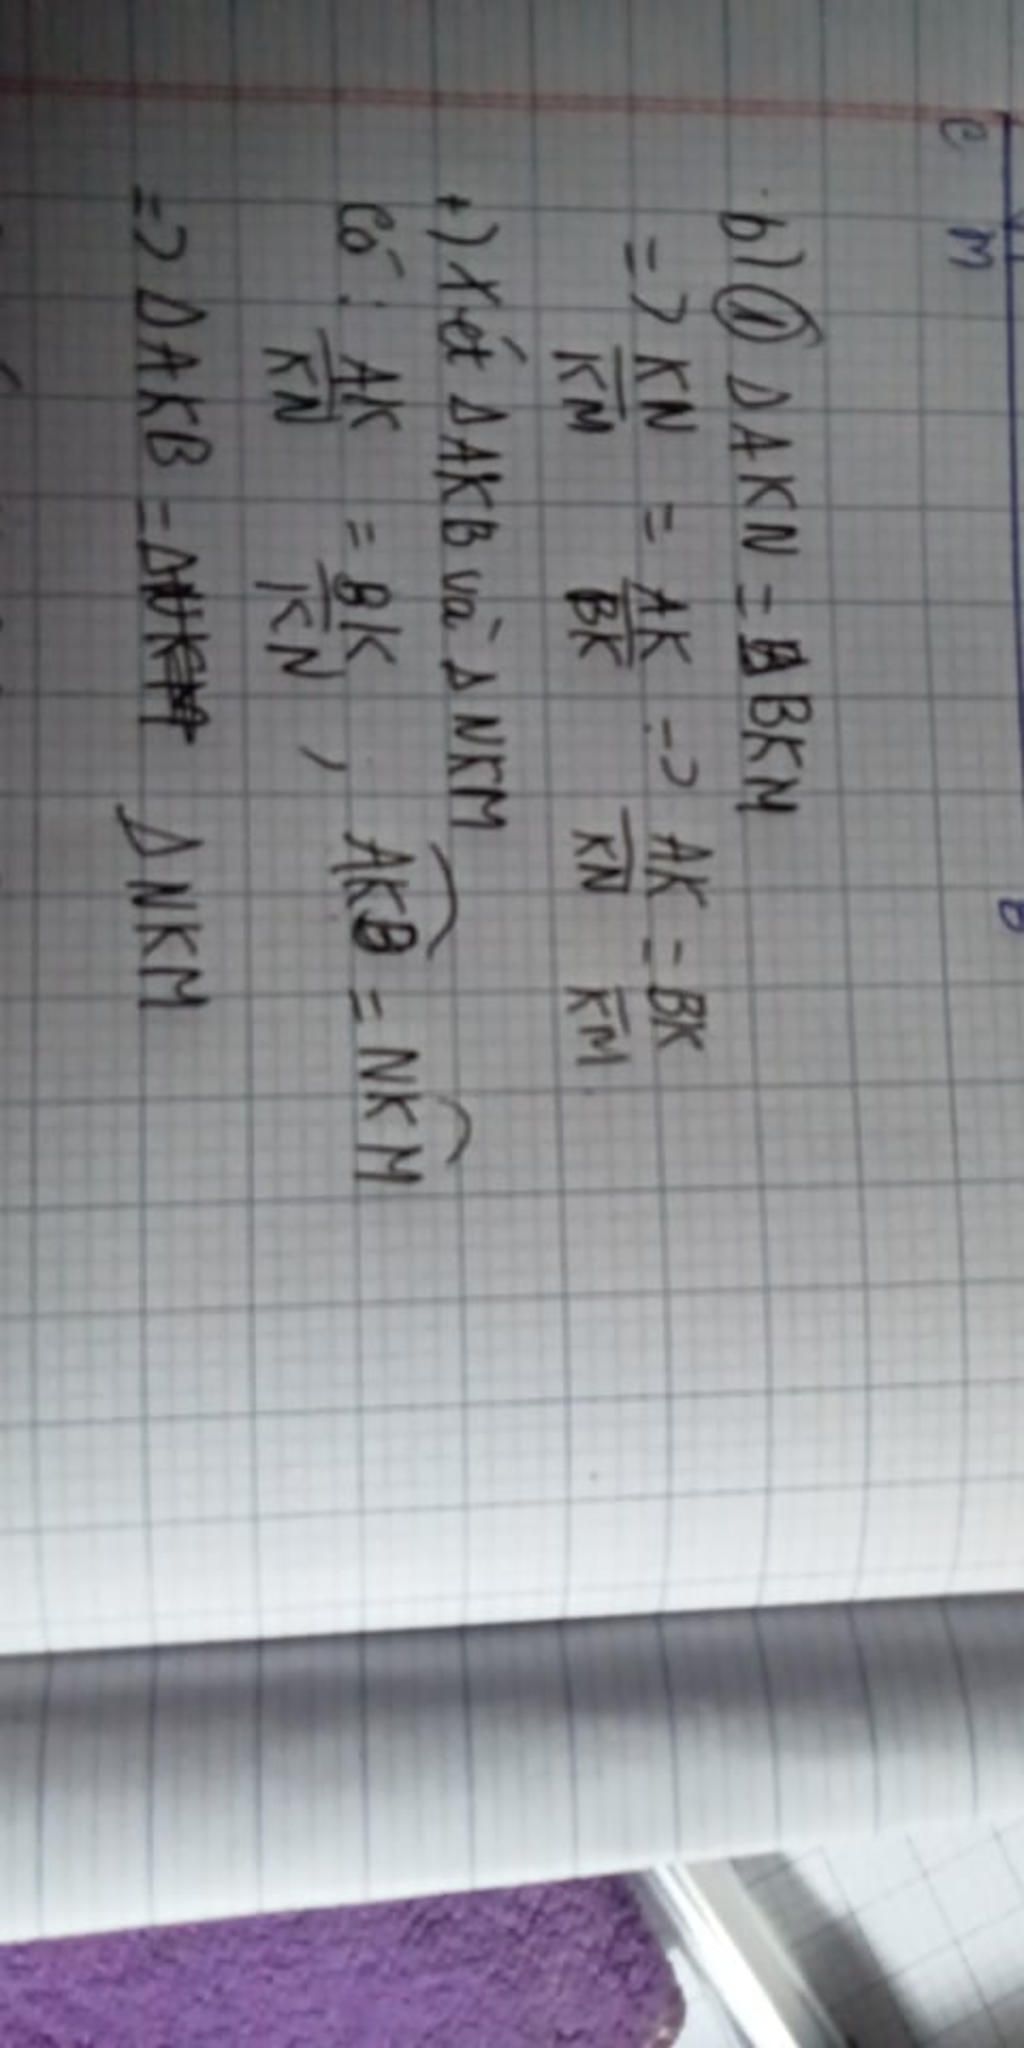 C M B
b) ① Δ AKN = Δ BKM
=> KN/KM = AK/BK -> AK/KN = BK/KM.
+) Xét Δ AKB và Δ NKM
Có : AK/KN = BK/KN , AKB = NKM
=> Δ AKB = Δ NKM Δ NKM